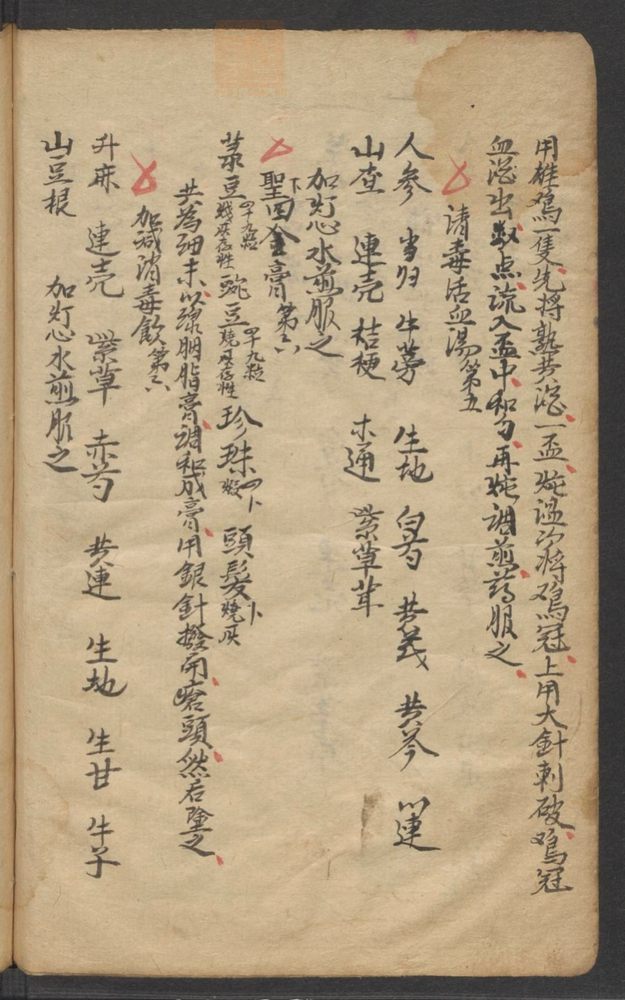 用雄鸡一隻先将熱黄酒一盃炖溫次将鸡冠上用大針刺破鸡冠
血滴出数点流入盃中和匀再炖調煎葯服之
清毒活血湯第五
人參 当归 牛蒡 生地 白芍 黄芪 黄芩 川連
山查 連壳 桔梗 木通 紫草茸
加灯心水煎服之
聖四金膏第六
菉豆四十九粒燒灰存性 豌豆四十九粒燒灰存性 珍珠 頭髮燒灰
共為細末以綠胭脂膏調和成膏用銀針撥開瘡頭然后塗之
加减消毒飲第六
升麻 連壳 紫草 赤芍 黄連 生地 生甘 牛子
山豆根 加灯心水煎服之